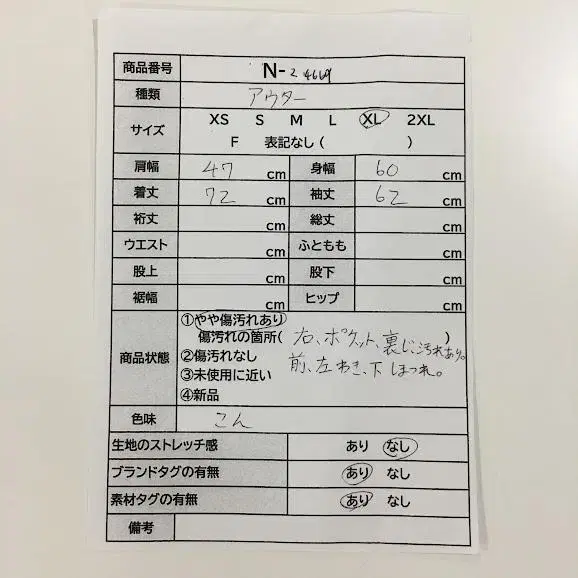 商品番号 N-2 4669
種類 アウター
サイズ XS S M L XL 2XL
F 表記なし( )
肩幅 47 cm 身幅 60 cm
着丈 72 cm 袖丈 62 cm
裄丈 cm 総丈 cm
ウエスト cm ふともも cm
股上 cm 股下 cm
裾幅 cm ヒップ cm
商品状態
①やや傷汚れあり
傷汚れの箇所( 右、ポケット、裏じ、汚れあり。 )
②傷汚れなし 前、左わき、下ほつれ。
③未使用に近い
④新品
色味 こん
生地のストレッチ感 あり なし
ブランドタグの有無 あり なし
素材タグの有無 あり なし
備考